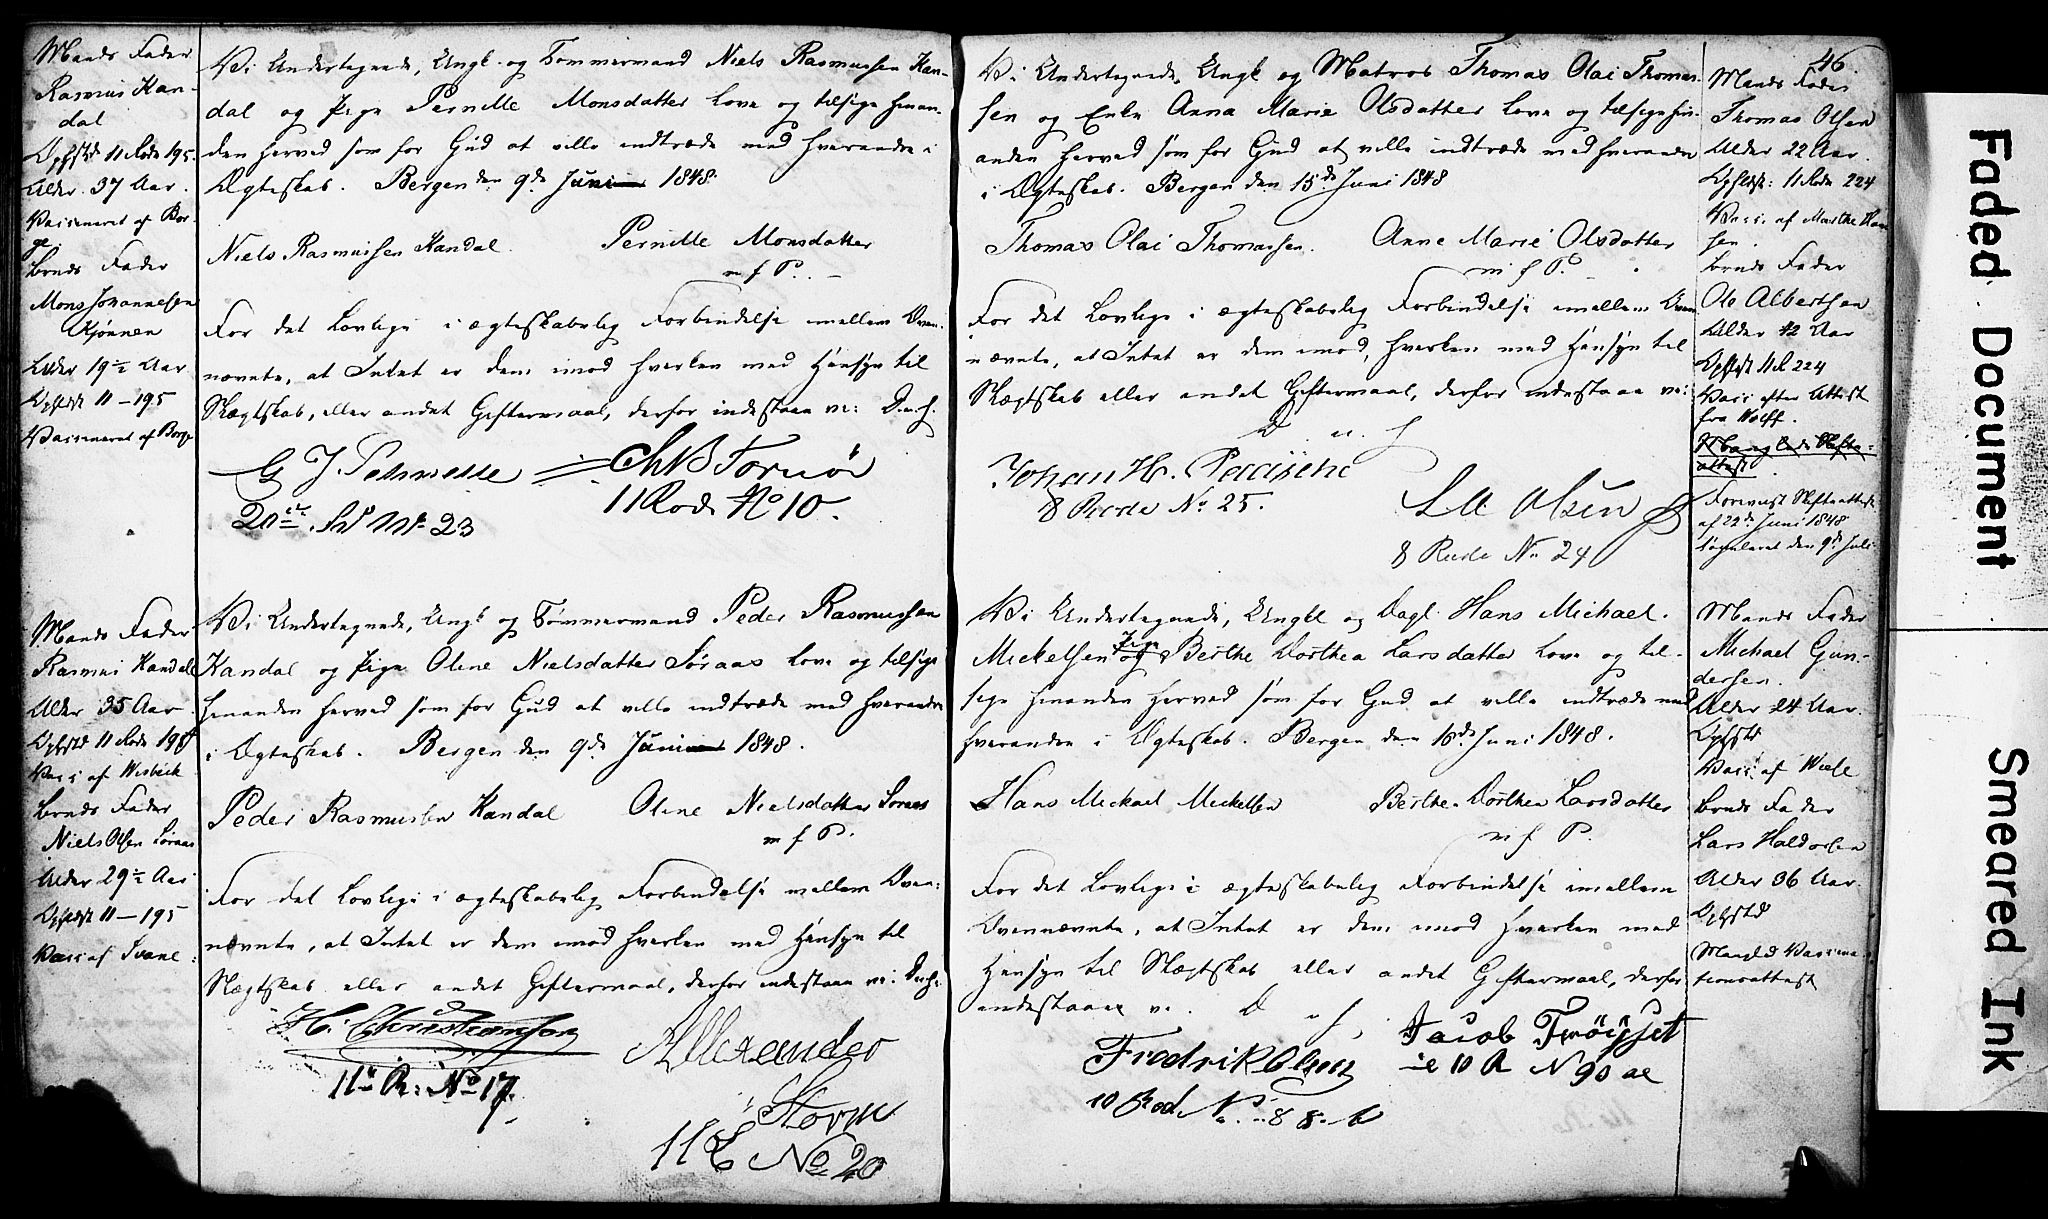 Mands Fader
Rasmus Kan-
dal
Opholdst 11 Rode 195
Alder 37 Aar.
Vaccineret af Bor-
ge
Bruds Fader
Mons Johannesen
Kjønnen
Alder 19½ Aar
Opholdst 11 - 195
Vaccineret af Borge
Vi Undertegnede, Ungk. og Tømmermand Niels Rasmussen Kan-
dal og Pige Pernille Monsdatter love og tilsige hinan-
den herved som for Gud at ville indtræde med hverandre i
Ægteskab. Bergen den 9de Juni 1848.
Niels Rasmussen Kandal Pernille Monsdatter
m f P.
For det Lovlige i ægteskabelig Forbindelse imellem Oven-
nævnte, at Intet er dem imod hverken med Hensyn til
Slægtskab, eller andet Giftermaal, derfor indestaae vi: D. u. f.
G J. Chr B Fornøe
20de No 23 11 Rode No 10.
Mands Fader
Rasmus Kandal
Alder 35 Aar
Opholdst 11 Rode 195
Vacc af Wisbech
Bruds Fader
Niels Olsen Søraas
Alder 29½ Aar
Opholdst 11 - 195
Vacc af Ivare
Vi Undertegnede, Ungk og Tømmermand Peder Rasmussen
Kandal og Pige Oline Nielsdatter Søraas love og tilsige
hinanden herved som for Gud at ville indtræde med hverandre
i Ægteskab. Bergen den 9de Juni 1848.
Peder Rasmussen Kandal Oline Nielsdatter Soraas
m f P.
For det Lovlige i ægteskabelig Forbindelse mellem Oven-
nævnte, at Intet er dem imod hverken med Hensyn til
Slægtskab eller andet Giftermaal, derfor indestaae vi: D.u.f.
H. Christiansen Allexander
11te R: No 17. Storm
11 R No 20
46
Vi Undertegnede, Ungk og Matros Thomas Olai Thomas-
sen og Enke Anna Marie Olsdatter love og tilsige hin-
anden herved som for Gud at ville indtræde med hverandre
i Ægteskab. Bergen den 15de Juni 1848
Thomas Olai Thomassen. Anne Marie Olsdatter
m f P.
For det Lovlige i ægteskabelig Forbindelse imellem Oven
nævnte, at Intet er dem imod, hverken med Hensyn til
Slægtskab eller andet Giftermaal, derfor indestaae vi:
D. u. f
Johan H.
8 Rode No 25. Olsen
8 Rode No 24
Mands Fader
Thomas Olsen
Alder 22 Aar.
Opholdst: 11 Rode 224
Vacc. af Marthe Han
sen.
Bruds Fader
Ole Albertsen
Alder 42 Aar
Opholdst 11 R 224
Vacc efter Attest
fra Wolff.
Mangl. Skifte-
attest
Forevist Skifteattest
af 22de Juni 1848
den 9de Juli
Vi Undertegnede, Ungkl og Dagl. Hans Michael
Mickelsen og Pige Berthe Dorthea Larsdatter love og til-
sige hinanden herved som for Gud at ville indtræde med
hverandre i Ægteskab. Bergen den 16de Juni 1848.
Hans Mickael Mickelsen Berthe Dorthea Larsdatter
m f P.
For det Lovlige i ægteskabelig Forbindelse imellem
Ovennævnte, at Intet er dem imod hverken med
Hensyn til Slægtskab eller andet Giftermaal, derfor
indestaaer vi. D u f,
Fredrik Olsen Jacob Trøigset
10 Rod No 88. b 10 R N 90 ae
Mands Fader
Michael Gun-
dersen.
Alder 24 Aar.
Opholdst
Vacc. af Wiele
Bruds Fader
Lars Haldorsen
Alder 36 Aar
Opholdst
Mangld Vaccina-
tionsattest
Faded Document
Smeared Ink